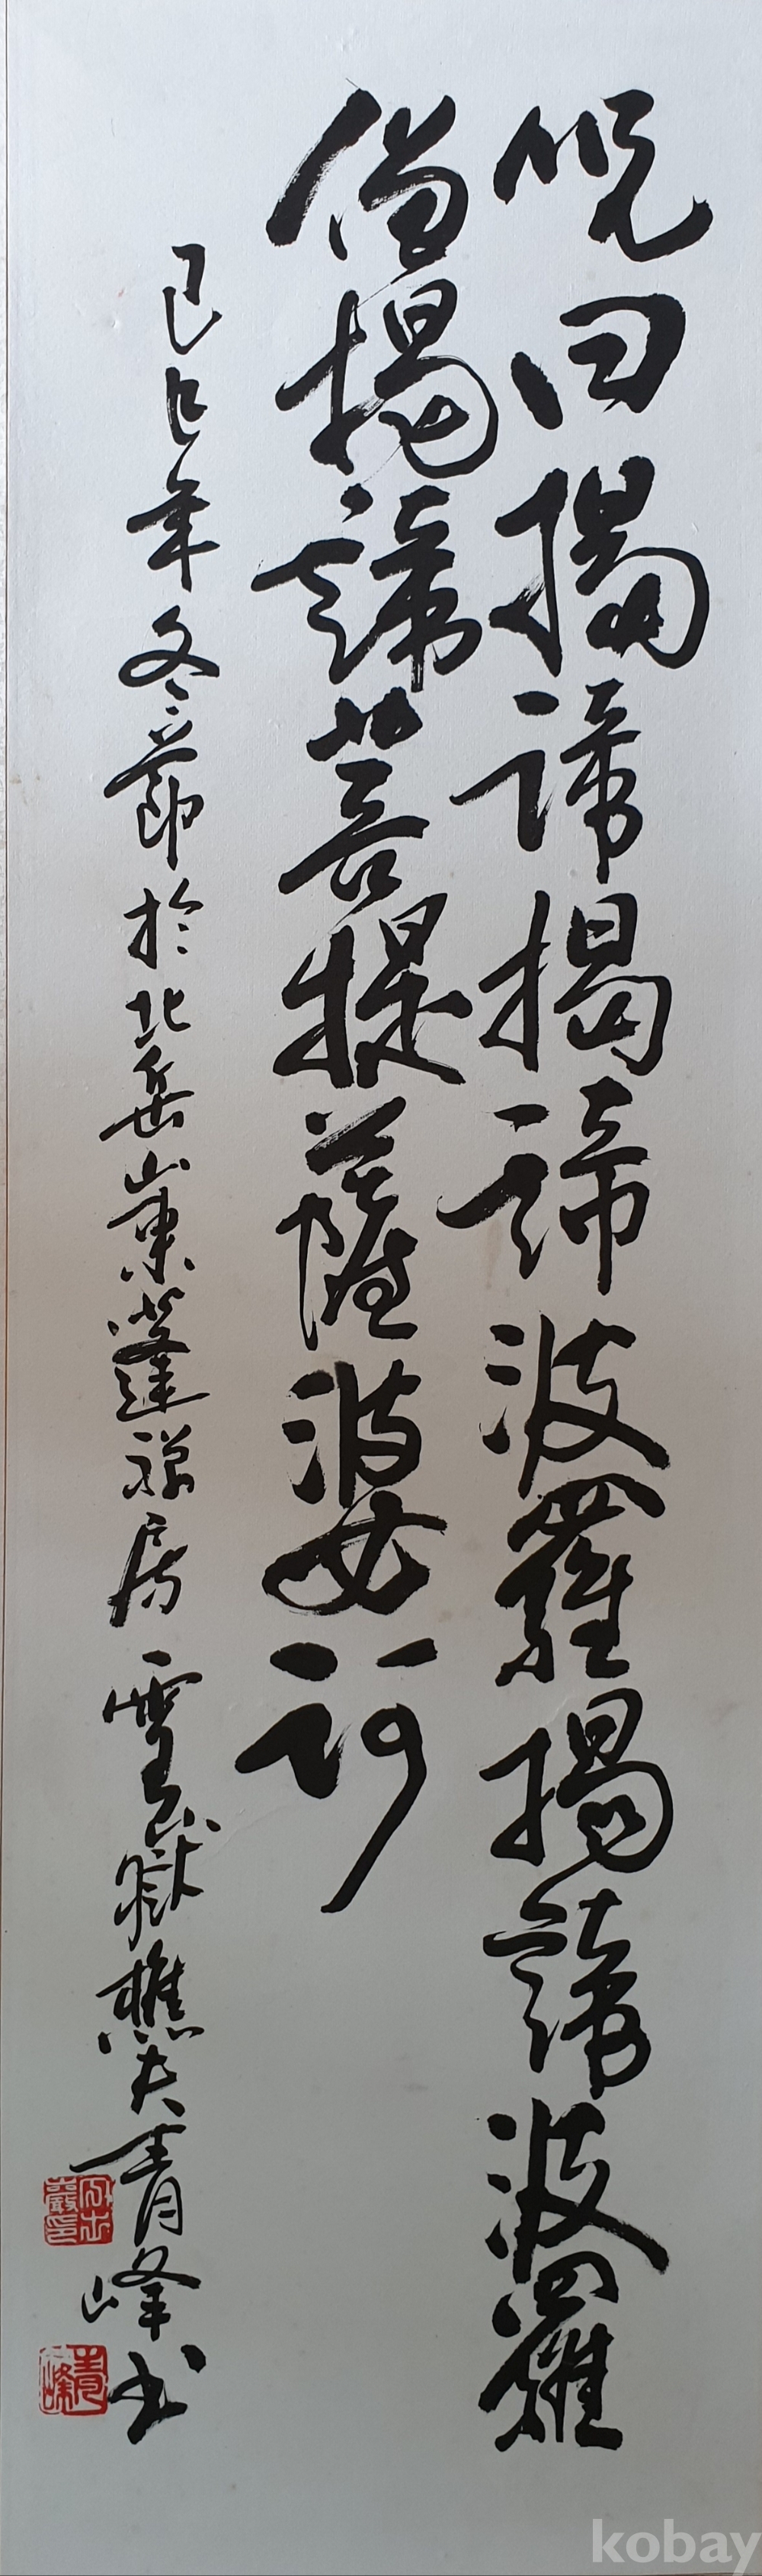 呪曰揭諦揭諦波羅揭諦波羅
僧揭諦菩提薩婆訶
己巳年冬節於北岳山東蓬禪房 雪嶽樵夫青峰書
青峰
kobay